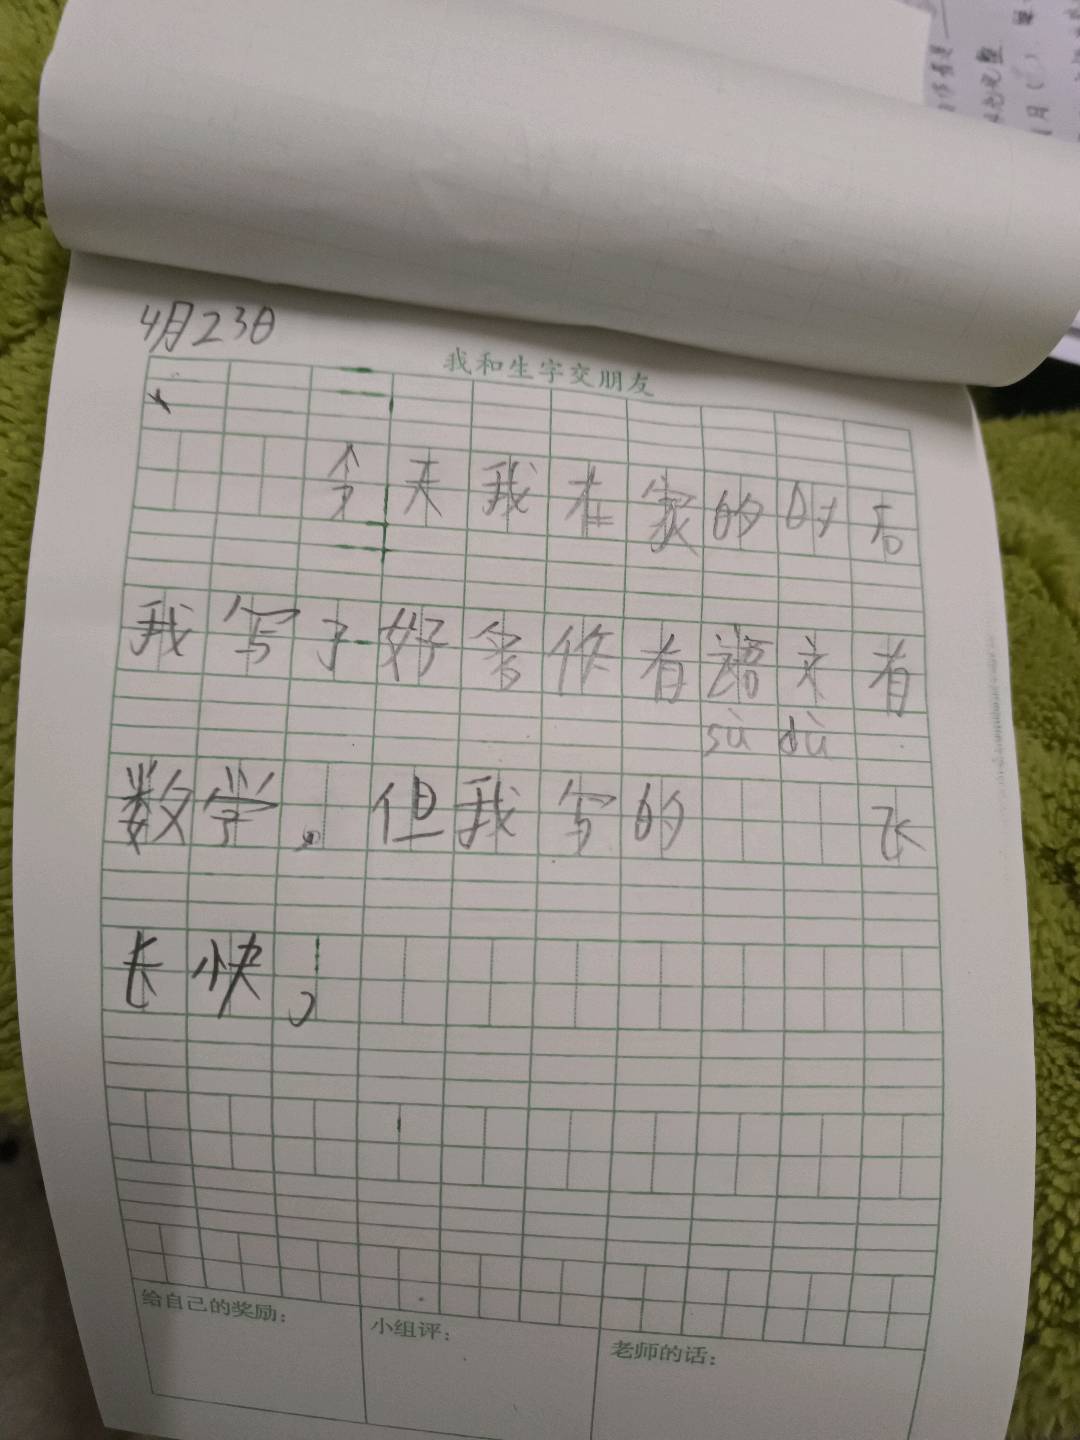 4月23日
我和生字交朋友
今天我在家的时后
我写了好多作有语文有
sù dù
数学。但我写的 飞
长快,
给自己的奖励:
小组评:
老师的话: